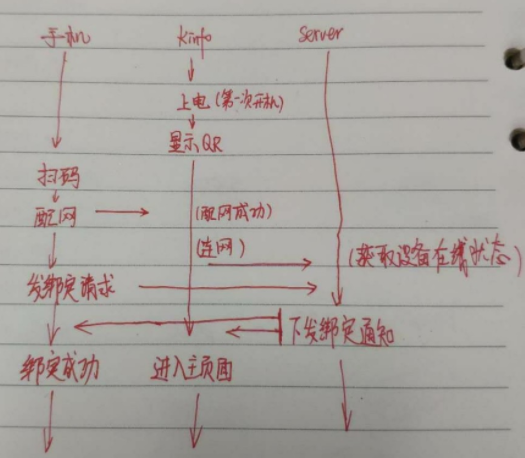 手机 Kinfo Server
上电(第一次开机)
显示QR
扫码
配网 (配网成功)
(连网) (获取设备在线状态)
发绑定请求
下发绑定通知
绑定成功 进入主页面